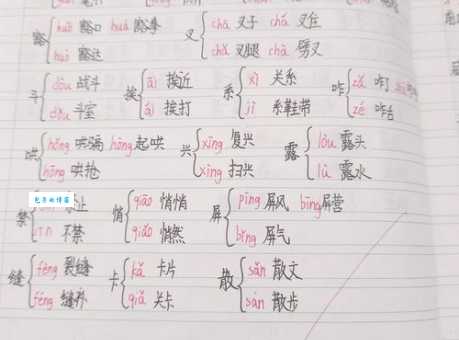 豁 huō 豁口 huá 豁拳 叉 chā 叉子 chá 叉住
huò 豁达 chǎ 叉腿 chà 劈叉
斗 dòu 战斗 挨 āi 挨近 系 xì 关系 咋 zǎ 咋叮
dǒu 斗室 ái 挨打 jì 系鞋带 zé 咋舌
哄 hǒng 哄骗 hòng 起哄 兴 xīng 复兴 露 lòu 露头
hōng 哄抢 xìng 扫兴 lù 露水
禁 止 悄 qiāo 悄悄 屏 píng 屏风 bīng 屏营
īn 不禁 qiǎo 悄然 bǐng 屏气
缝 fèng 裂缝 卡 kǎ 卡片 散 sǎn 散文
féng 缝补 qiǎ 关卡 sàn 散步